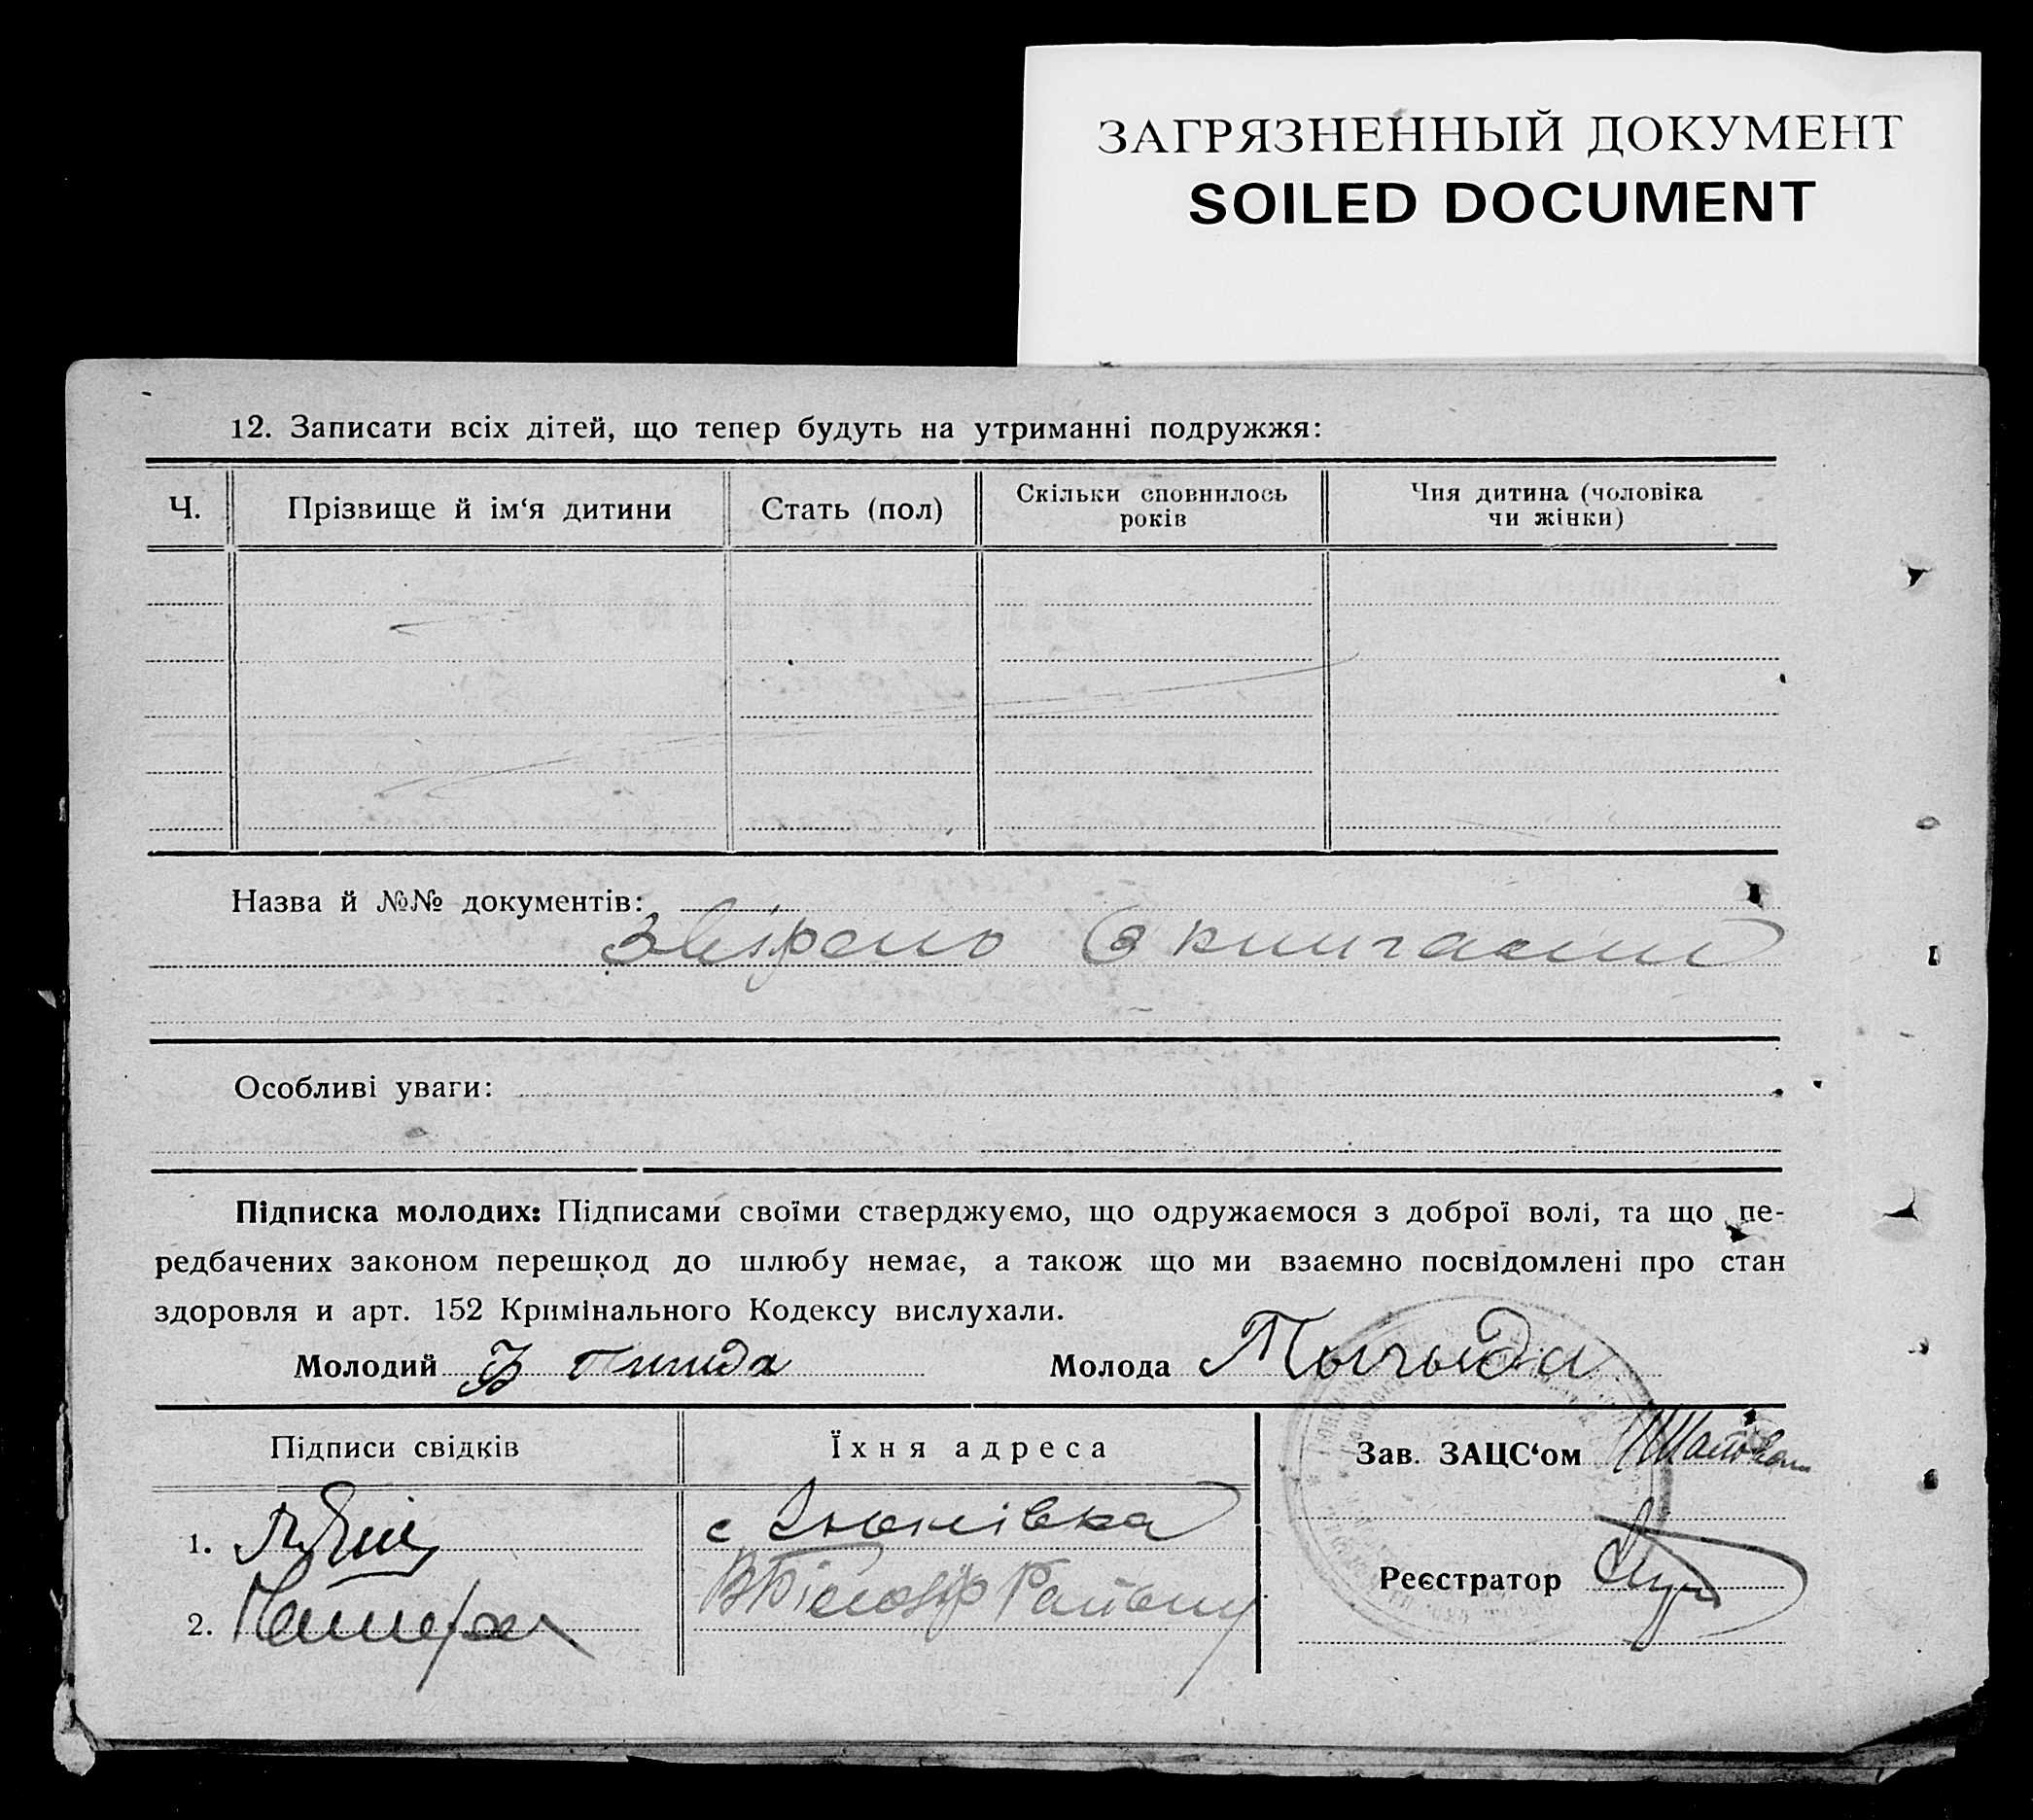 ЗАГРЯЗНЕННЫЙ ДОКУМЕНТ
SOILED DOCUMENT
12. Записати всіх дітей, що тепер будуть на утриманні подружжя:
Ч. Прізвище й ім‘я дитини Стать (пол) Скільки сповнилось років Чия дитина (чоловіка чи жінки)
Назва й №№ документів:
Звірено з книгами
Особливі уваги:
Підписка молодих: Підписами своїми стверджуємо, що одружаємося з доброї волі, та що пе-
редбачених законом перешкод до шлюбу немає, а також що ми взаємно посвідомлені про стан
здоровля и арт. 152 Кримінального Кодексу вислухали.
Молодий Молода
Підписи свідків Їхня адреса Зав. ЗАЦС‘ом
1. с
Реєстратор
2. Району